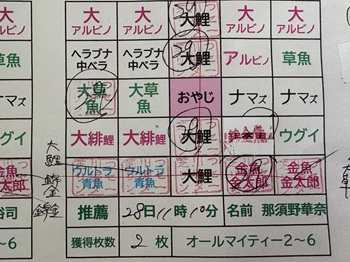 大 アルビノ 大 アルビノ 大鯉 大 アルビノ 大 アルビノ
ヘラブナ 中ベラ ヘラブナ 中ベラ 大鯉 アルビ 草魚
大草魚 大草魚 おやじ ナマズ ナマズ
大緋鯉 大緋鯉 大鯉 ウグイ
金魚 金太郎 ウルトラ 青魚 ウルトラ 青魚 大鯉 金魚 金太郎 金魚 金太郎
裕司 推薦 28日11時10分 名前 那須野華奈
2~6 獲得枚数 2枚 オールマイティー2~6